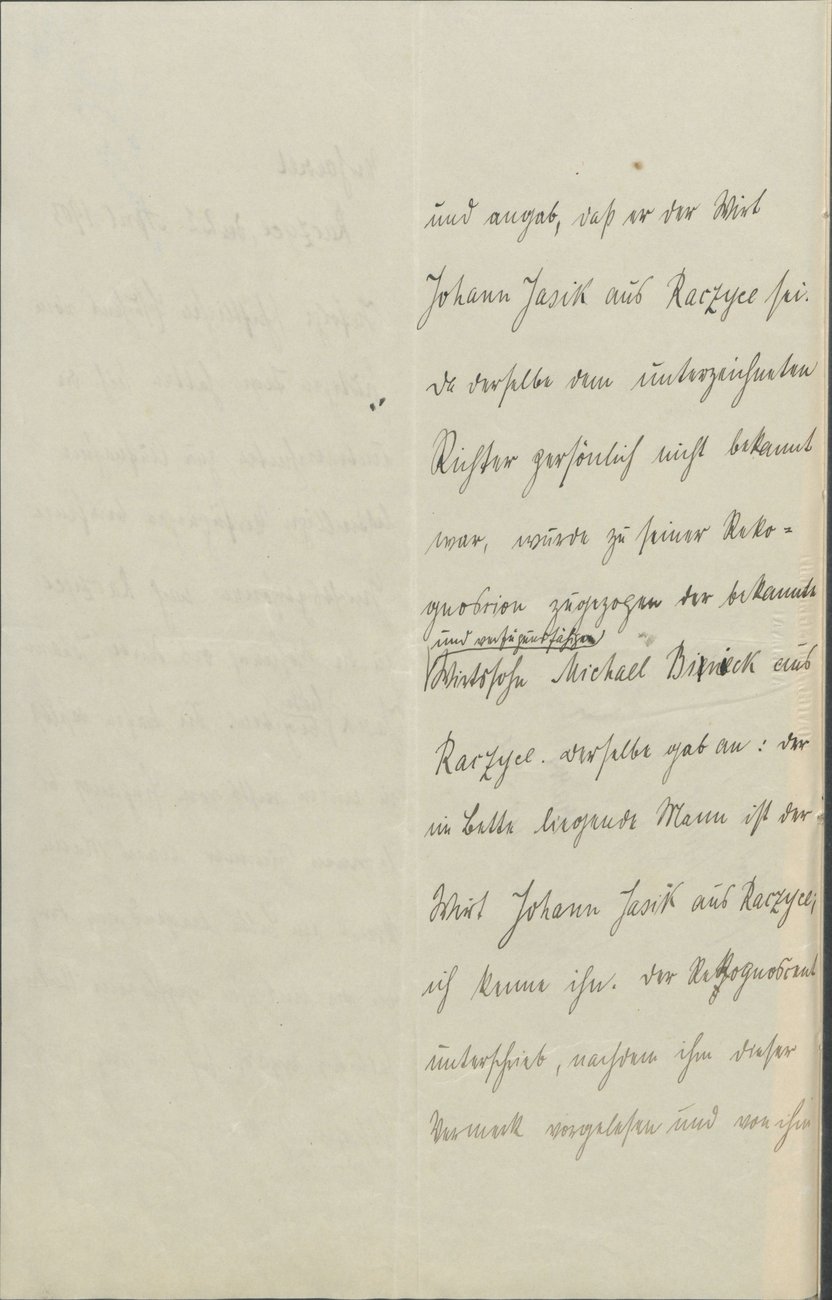 und angab, daß er der Wirt
Johann Jasik aus Raczyce sei.
Da derselbe dem unterzeichneten
Richter persönlich nicht bekannt
war, wurde zu seiner Reko=
gnoscion zugezogen der bekannte
und verfügungsfähige
Wirtssohn Michael aus
Raczyce. Derselbe gab an: der
im Bette liegende Mann ist der
Wirt Johann Jasik aus Raczyce;
ich kenne ihn. Der Rekognoscent
unterschrieb, nachdem ihm dieser
Vermerk vorgelesen und von ihm